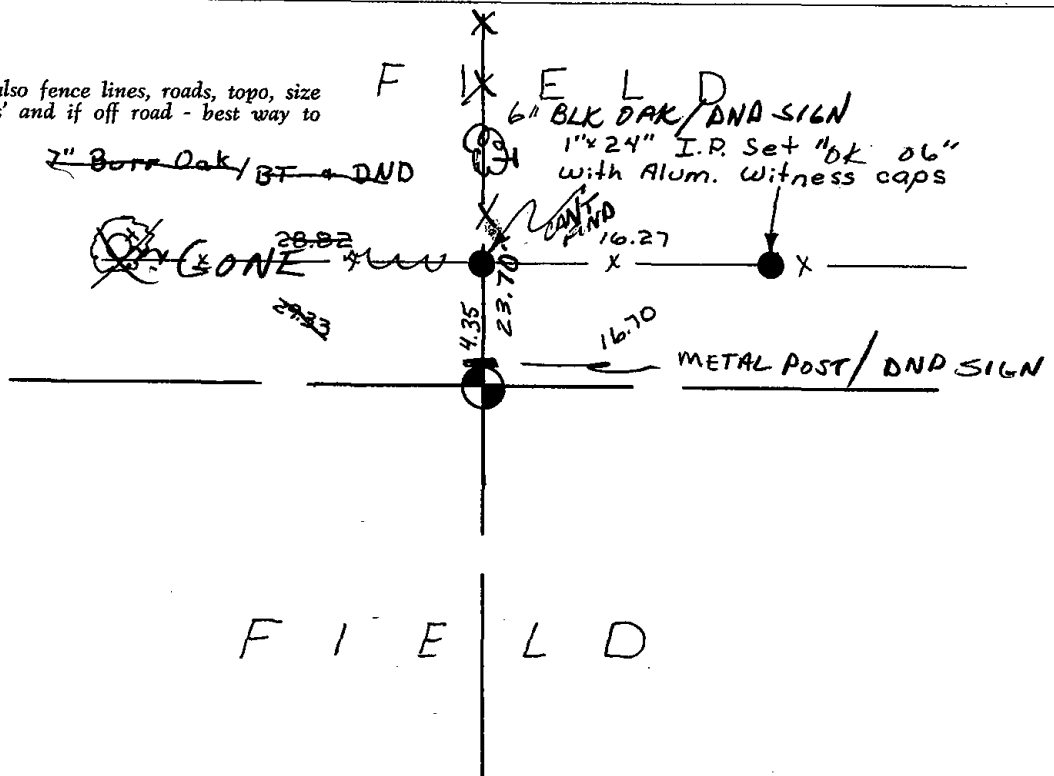 also fence lines, roads, topo, size
s' and if off road - best way to
F I E L D
6" BLK OAK/DND SIGN
1"x 24" I.P. Set "OK 06"
with Alum. Witness caps
7" Burr Oak/BT + DND
CAN'T FIND
28.82
GONE
16.27
29.33
4.35
23.70
16.70
METAL POST/DND SIGN
F I E L D